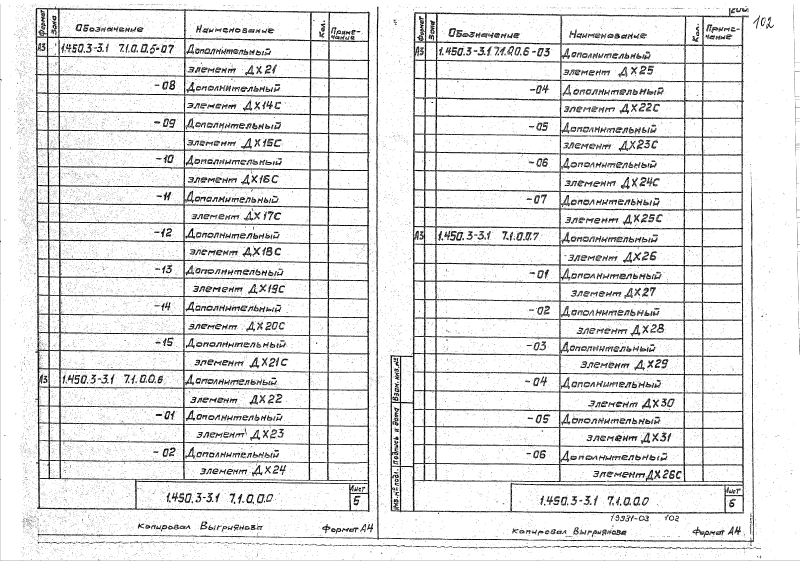 Формат Зона Обозначение Наименование Кол. Приме-чание
А3 1.450.3-3.1 7.1.0.0.6-07 Дополнительный
элемент ДХ21
-08 Дополнительный
элемент ДХ14С
-09 Дополнительный
элемент ДХ15С
-10 Дополнительный
элемент ДХ16С
-11 Дополнительный
элемент ДХ17С
-12 Дополнительный
элемент ДХ18С
-13 Дополнительный
элемент ДХ19С
-14 Дополнительный
элемент ДХ20С
-15 Дополнительный
элемент ДХ21С
А3 1.450.3-3.1 7.1.0.0.6 Дополнительный
элемент ДХ22
-01 Дополнительный
элемент ДХ23
-02 Дополнительный
элемент ДХ24
1.450.3-3.1 7.1.0.0.0
Лист
5
Копировал Выгриянова Формат А4
102
Формат Зона Обозначение Наименование Кол. Приме-чание
А3 1.450.3-3.1 7.1.0.0.6-03 Дополнительный
элемент ДХ25
-04 Дополнительный
элемент ДХ22С
-05 Дополнительный
элемент ДХ23С
-06 Дополнительный
элемент ДХ24С
-07 Дополнительный
элемент ДХ25С
А3 1.450.3-3.1 7.1.0.0.7 Дополнительный
элемент ДХ26
-01 Дополнительный
элемент ДХ27
-02 Дополнительный
элемент ДХ28
-03 Дополнительный
элемент ДХ29
-04 Дополнительный
элемент ДХ30
-05 Дополнительный
элемент ДХ31
-06 Дополнительный
элемент ДХ26С
Инв.№ подл. Подпись и дата Взам.инв.№
1.450.3-3.1 7.1.0.0.0
Лист
6
19931-03 102
Копировал Выгриянова Формат А4